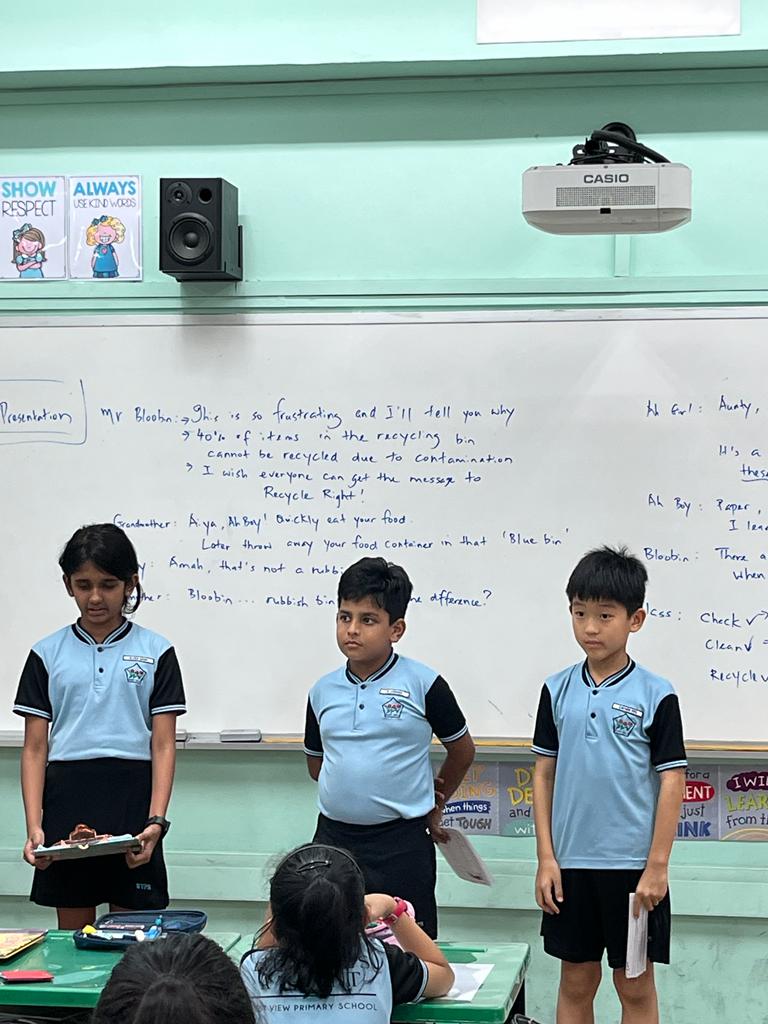 SHOW
RESPECT
ALWAYS
USE KIND WORDS
CASIO
Presentation
Mr Bloobin: → This is so frustrating and I'll tell you why
→ 40% of items in the recycling bin
cannot be recycled due to contamination
→ I wish everyone can get the message to
Recycle Right!
Grandmother: Aiya, Ah Boy! Quickly eat your food.
Later throw away your food container in that 'Blue bin'
Amah, that's not a rubbi
Bloobin... rubbish bin
difference?
Ah Girl: Aunty,
It's a
these
Ah Boy: Paper,
I lea
Bloobin: There a
when
Class: Check ✓
Clean ✓ =
Recycle ✓
when things
get TOUGH
and
just
I WI
LEAR
from th
VIEW PRIMARY SCHOOL